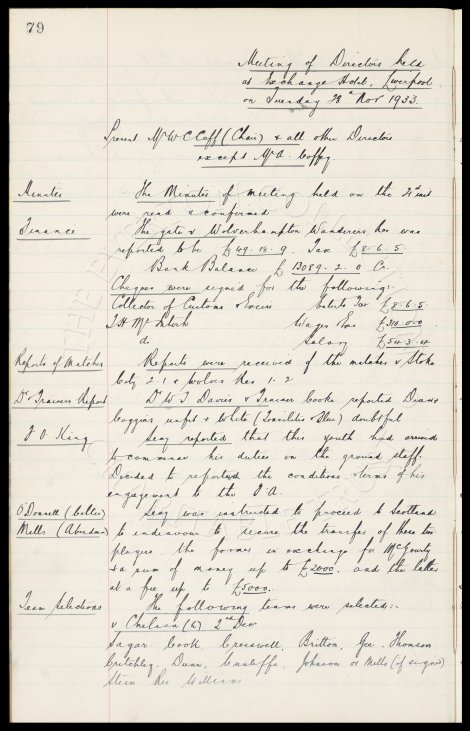 79
Meeting of Directors held
at Exchange Hotel, Liverpool
on Tuesday 28th Nov 1933.
Present Mr W C Cuff (Chair) & all other Directors
except Mr A. Coffey
Minutes
The Minutes of meeting held on the 21st inst
were read & confirmed
Finance
The gate v Wolverhampton Wanderers Res was
reported to be £49.18.9 Tax £8.6.5
Bank Balance £ 13089.2.0 Cr.
Cheques were signed for the following:
Collector of Customs & Excise Entets Tax £8.6.5
T. H. McIntosh Wages &c £310.0.0
do Salary £54.3.4
Reports of Matches
Reports were received of the matches v Stoke
City 2-1 & Wolves Res 1-2
Dr & Trainers Report
Dr W J Davies & Trainer Cooke reported Deans
Coggins unfit & White (Tonsilitis & Flue) doubtful
J O King
Secy reported that this youth had arrived
to commence his duties on the ground staff.
Decided to report the conditions & terms of his
engagement to the F.A.
O'Donnell (Celtic)
Mills (Aberdeen)
Secy was instructed to proceed to Scotland
to endeavour to secure the transfer of these two
players the former in exchange for McGourty
& a sum of money up to £2000. and the latter
at a fee up to £5000.
Team Selections
The following teams were selected:-
v Chelsea 2nd Dec
Sagar Cook. Cresswell. Britton. Gee. Thomson
Critchley. Dunn. Cunliffe. Johnson or Mills (if signed)
Stein Res Williams